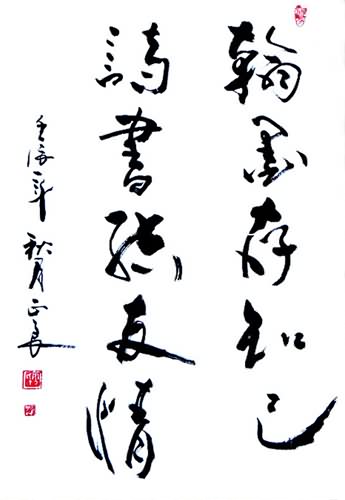 翰墨存知己
詩書結友情
壬辰年秋月正良